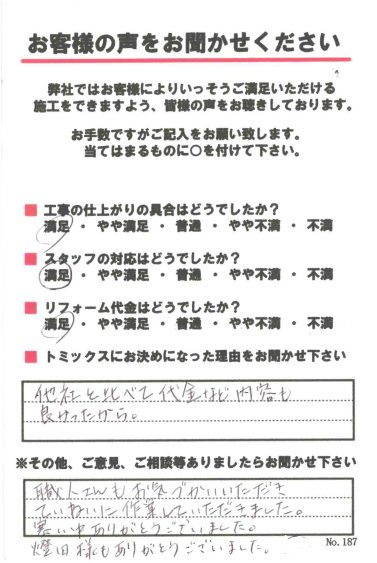 お客様の声をお聞かせください
弊社ではお客様によりいっそうご満足いただける
施工をできますよう、皆様の声をお聴きしております。
お手数ですがご記入をお願い致します。
当てはまるものに〇を付けて下さい。
■ 工事の仕上がりの具合はどうでしたか?
満足 ・ やや満足 ・ 普通 ・ やや不満 ・ 不満
■ スタッフの対応はどうでしたか?
満足 ・ やや満足 ・ 普通 ・ やや不満 ・ 不満
■ リフォーム代金はどうでしたか?
満足 ・ やや満足 ・ 普通 ・ やや不満 ・ 不満
■ トミックスにお決めになった理由をお聞かせ下さい
他社と比べて代金など内容も
良かったから。
※その他、ご意見、ご相談等ありましたらお聞かせ下さい
職人さんもお気づかいいただき
ていねいに作業していただきました。
寒い中ありがとうございました。
様もありがとうございました。
No.187